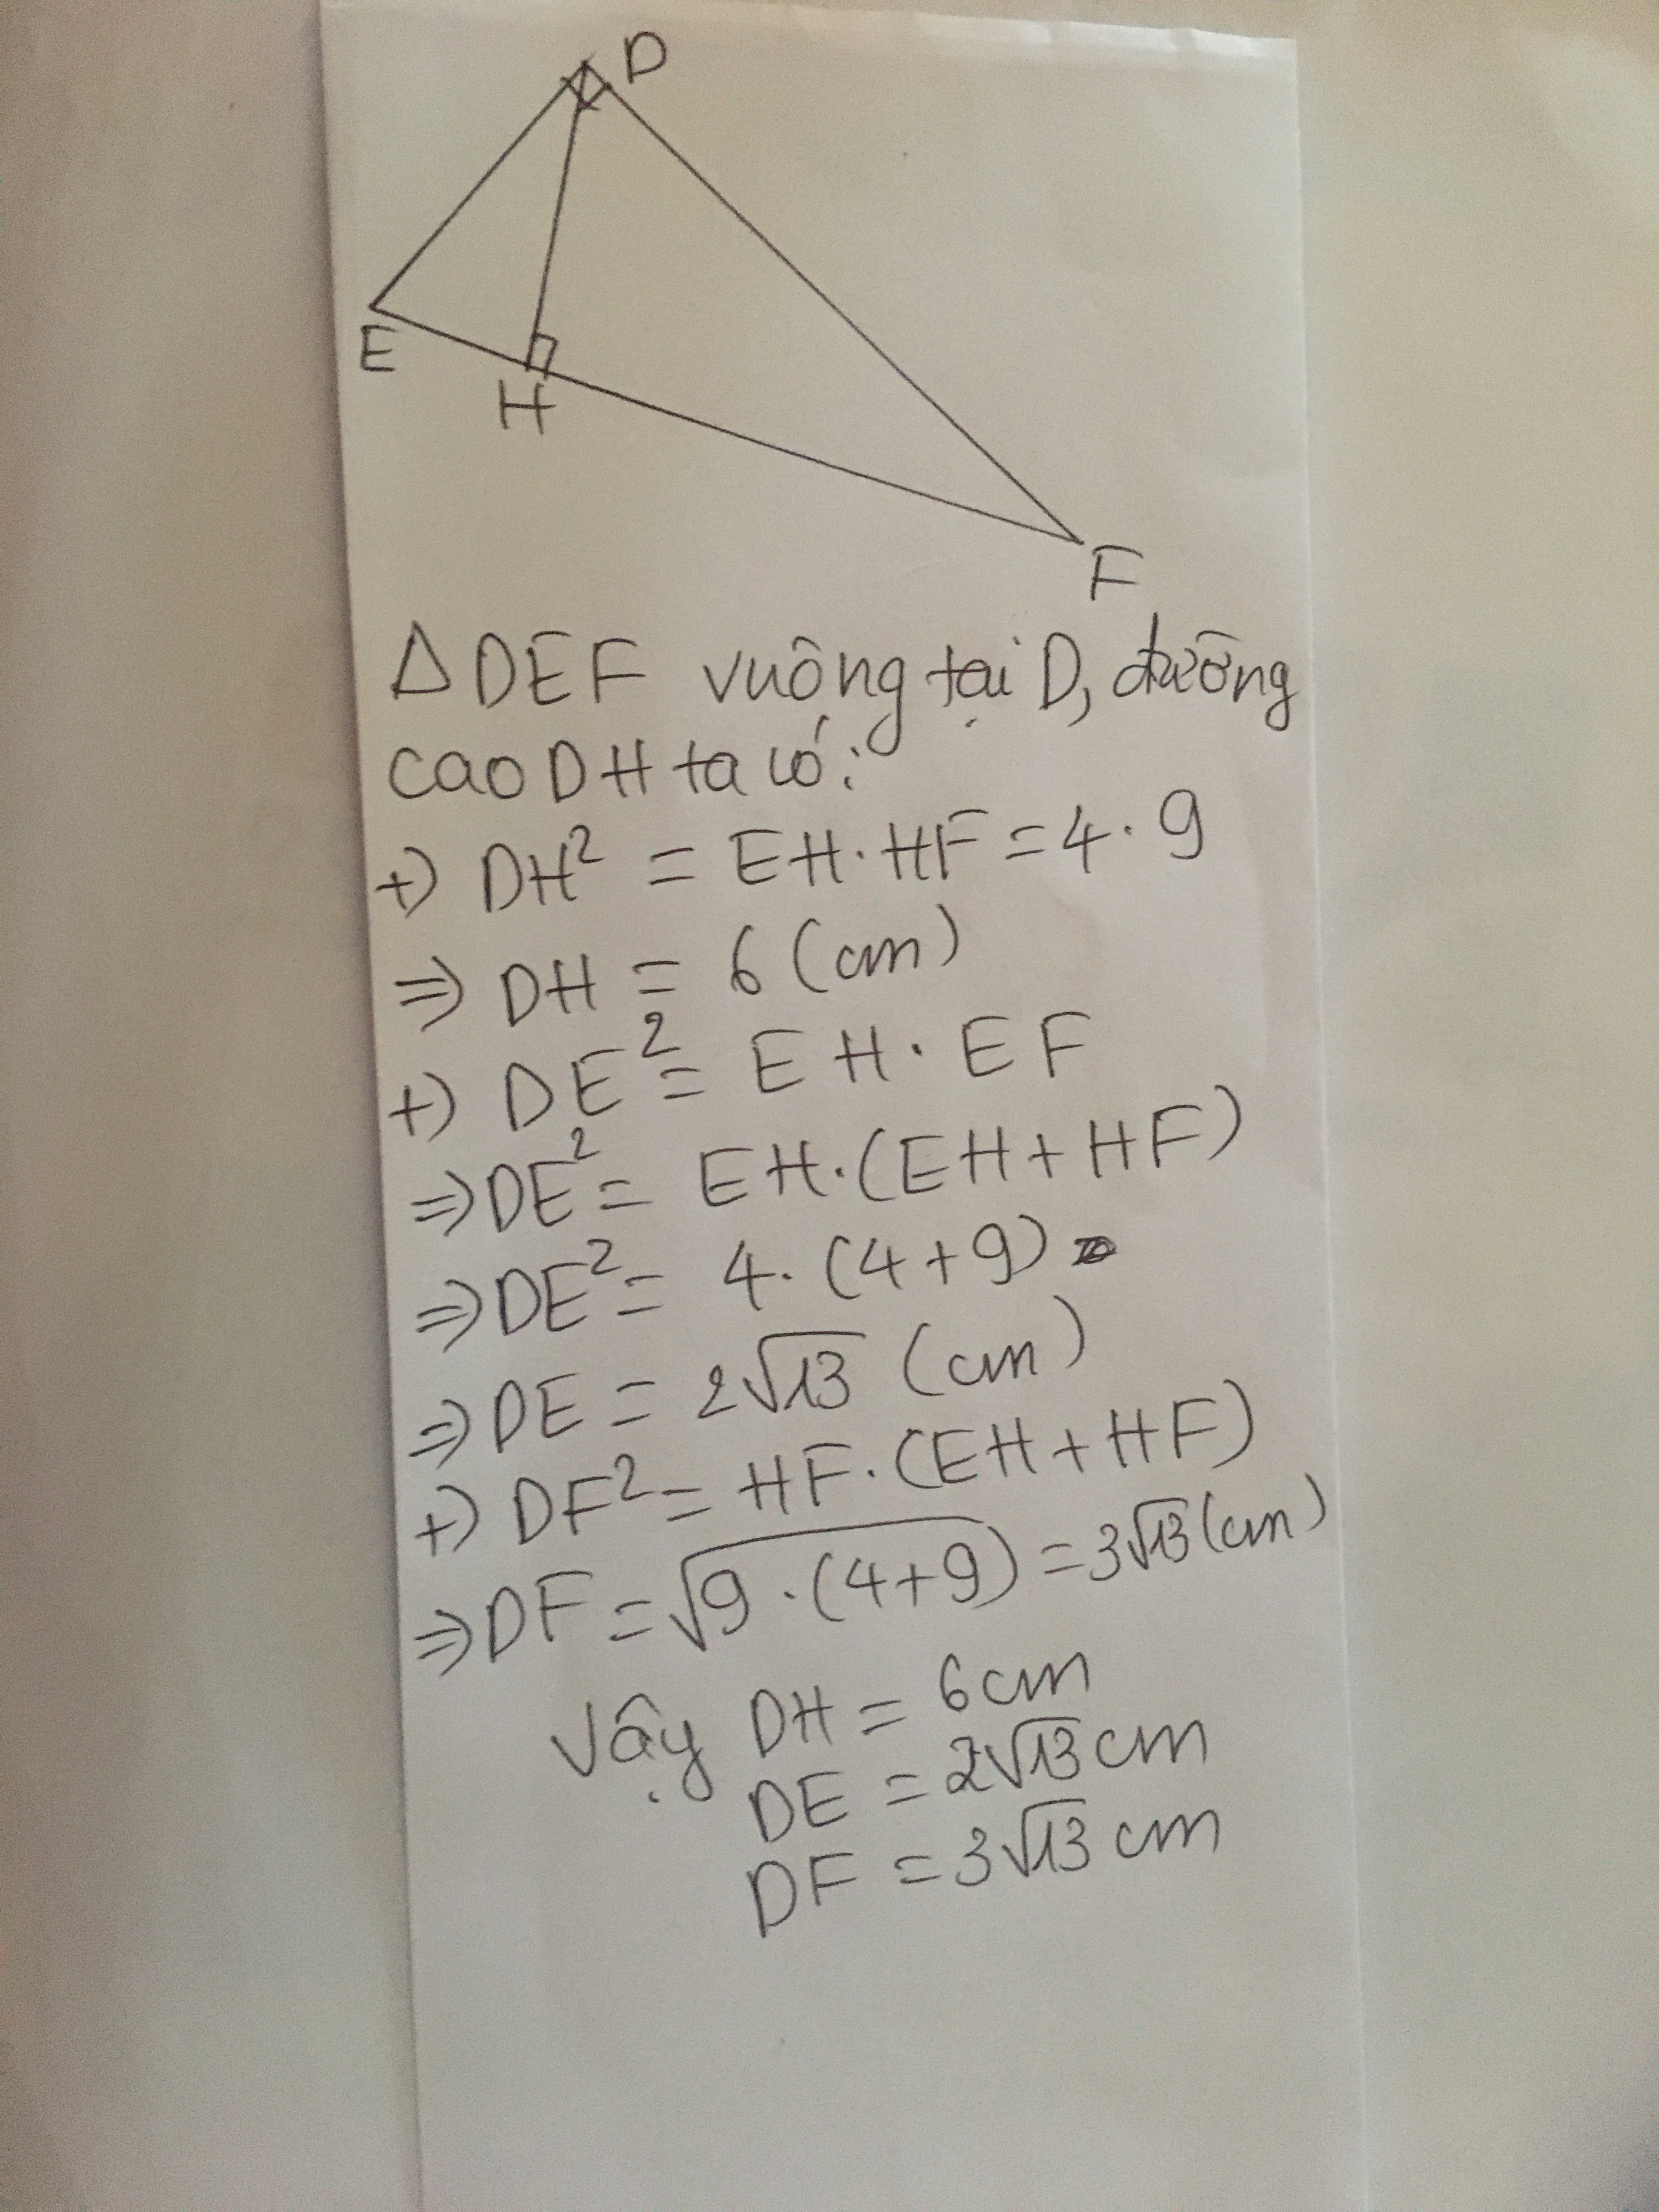 D
E
H
F
Δ DEF vuông tại D, đường
cao DH ta có:
+) DH² = EH · HF = 4 · 9
⇒ DH = 6 (cm)
+) DE² = EH · EF
⇒ DE² = EH · (EH + HF)
⇒ DE² = 4 · (4 + 9)
⇒ DE = 2√13 (cm)
+) DF² = HF · (EH + HF)
⇒ DF = √9 · (4+9) = 3√13 (cm)
Vậy DH = 6 cm
DE = 2√13 cm
DF = 3√13 cm